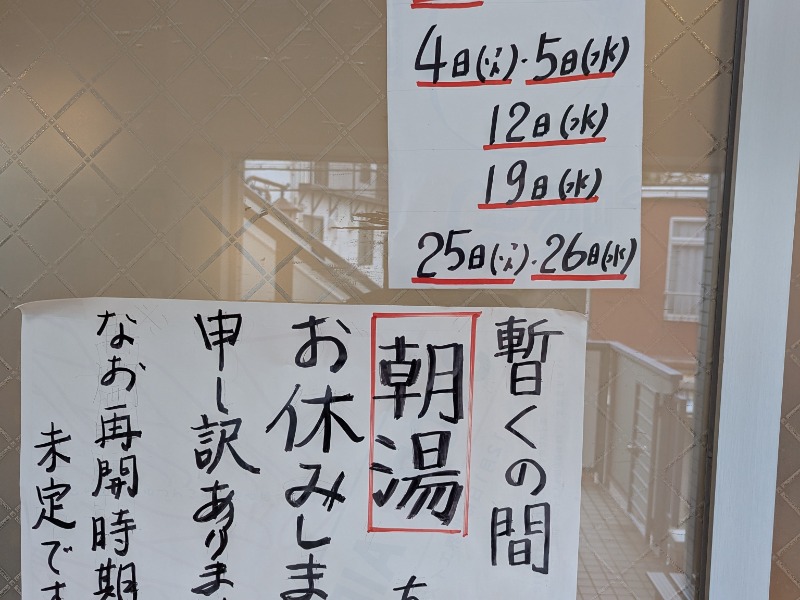 4日(火)・5日(水)
12日(水)
19日(水)
25日(火)・26日(水)
暫くの間
朝湯
お休みしま
申し訳ありま
なお再開時期
未定です